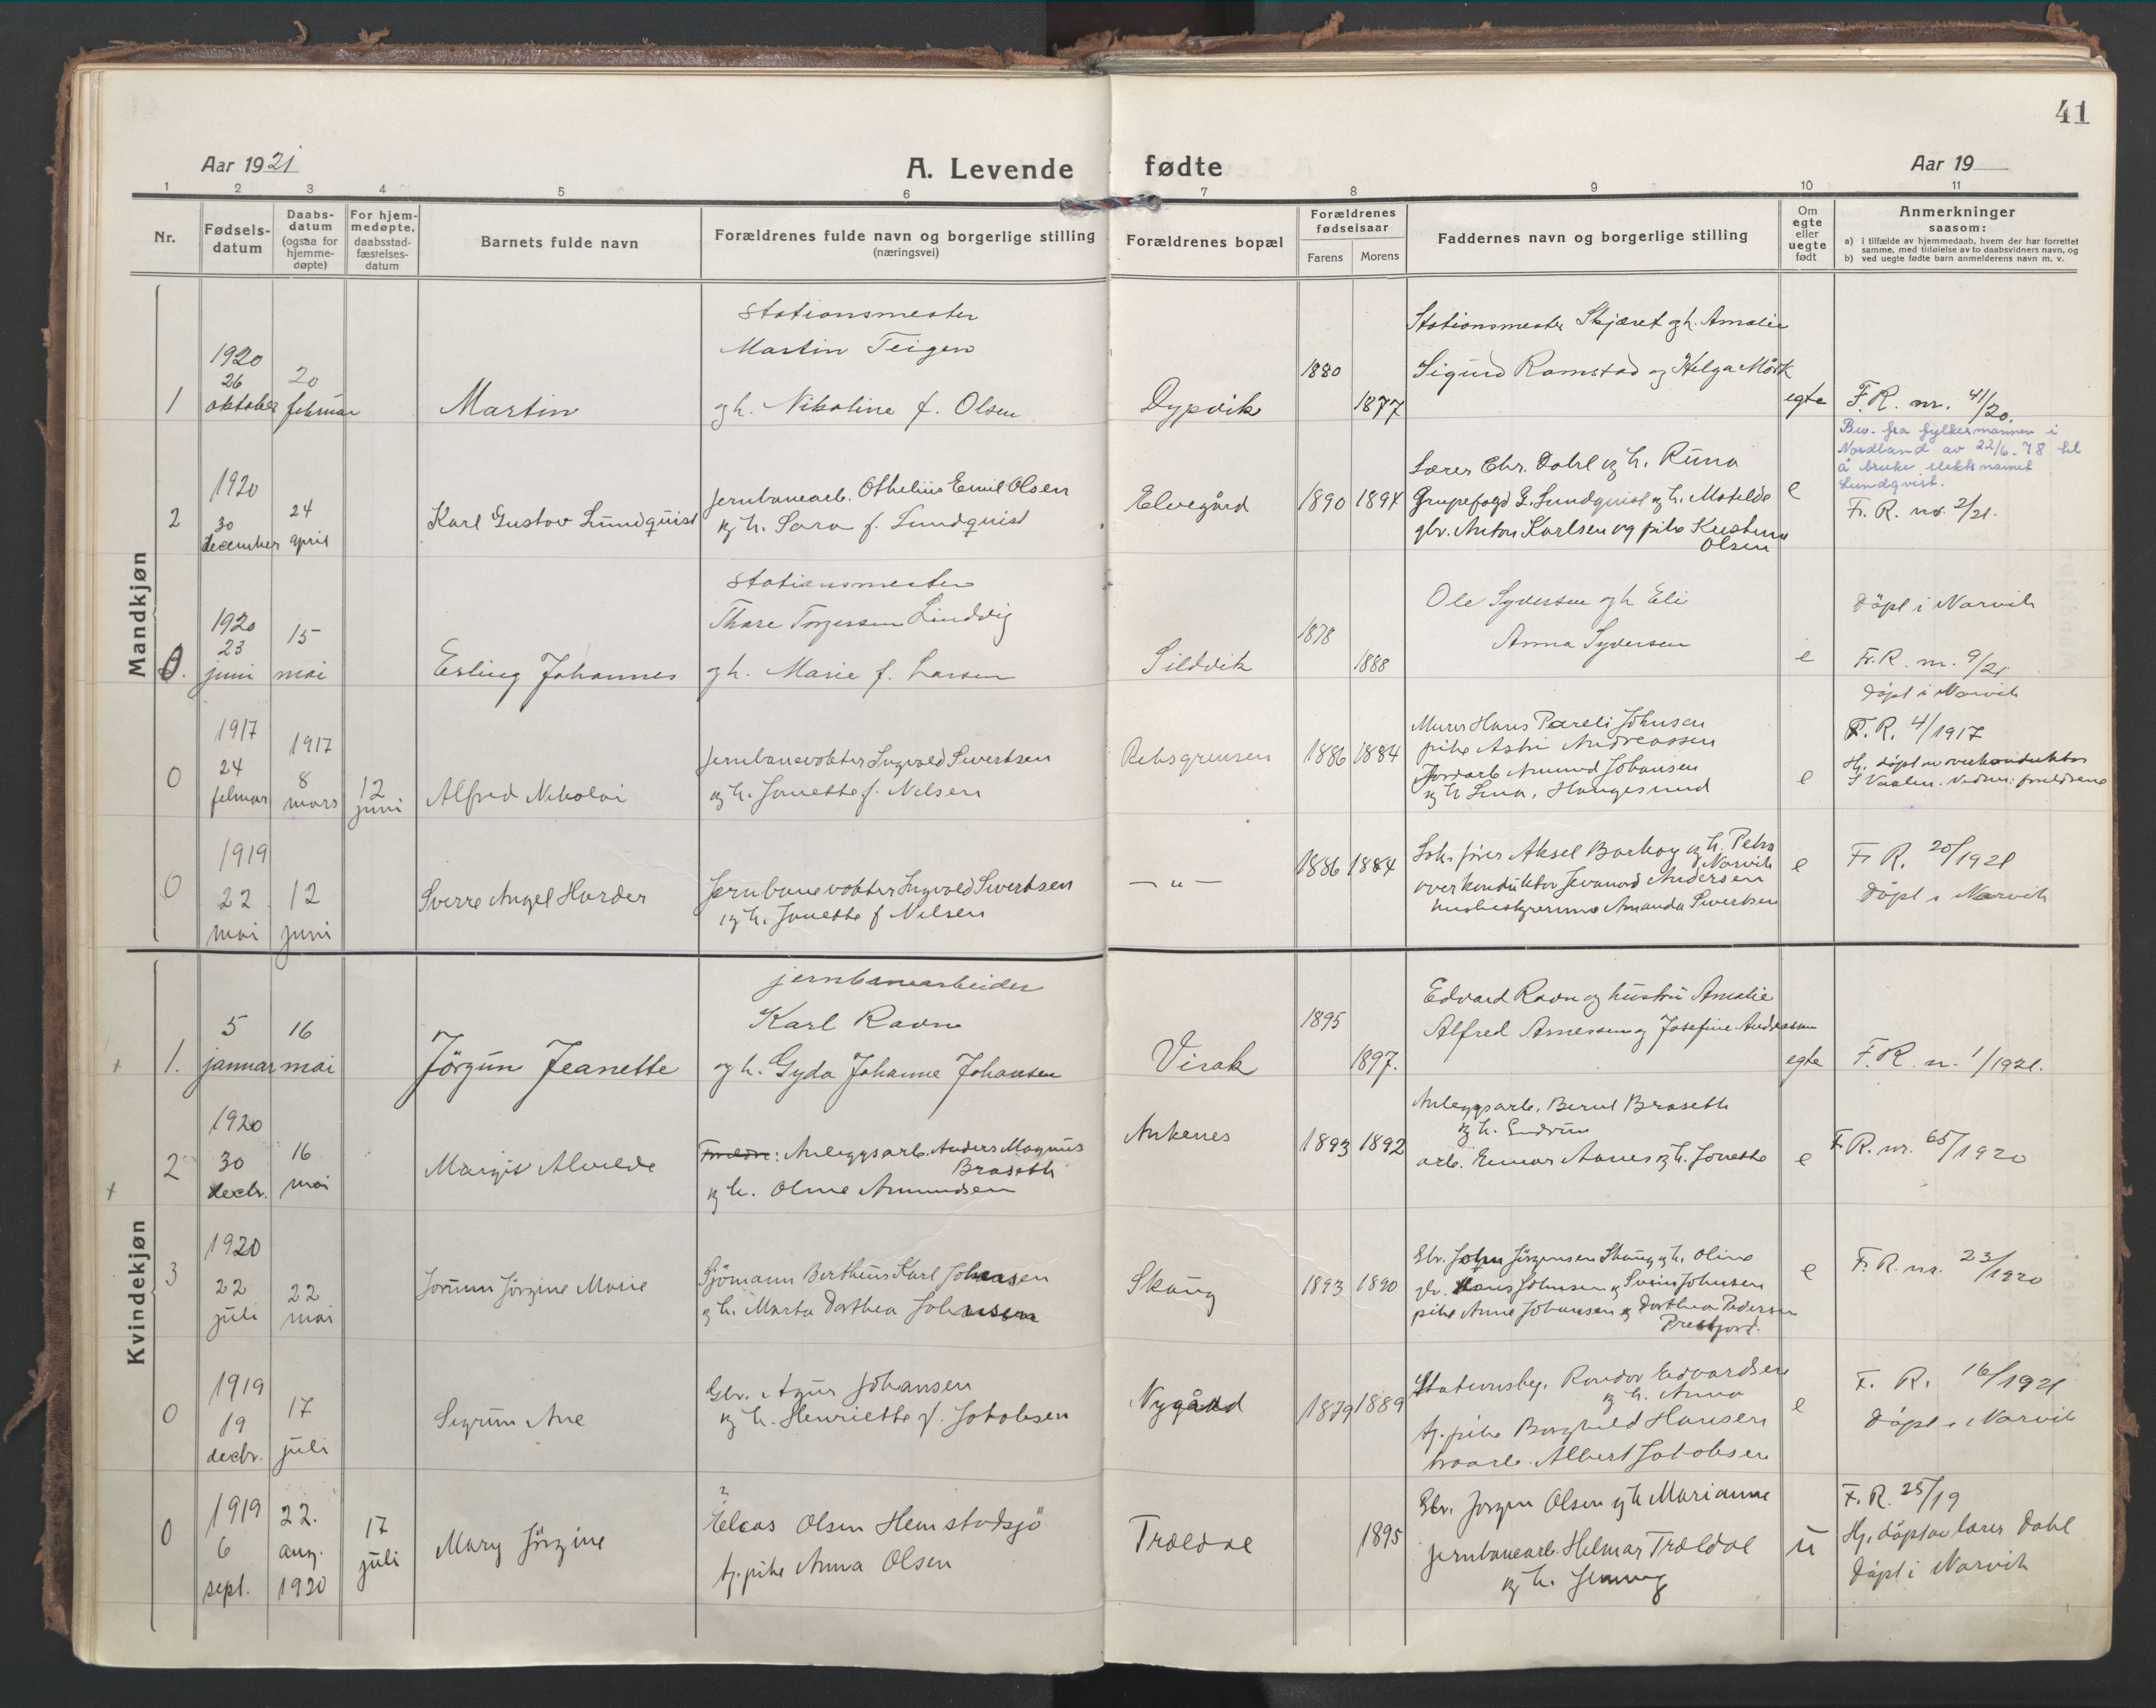 41
Aar 1921
A. Levende fødte
Aar 19
1 2 3 4 5 6 7 8 9 10 11
Nr.
Fødsels-
datum
Daabs-
datum
(ogsaa for
hjemme-
døpte)
For hjem-
medøpte,
daabsstad-
fæstelses-
datum
Barnets fulde navn
Forældrenes fulde navn og borgerlige stilling
(næringsvei)
Forældrenes bopæl
Forældrenes
fødselsaar
Farens Morens
Faddernes navn og borgerlige stilling
Om
egte
eller
uegte
født
Anmerkninger
saasom:
a) i tilfælde av hjemmedaab, hvem der har forrettet
samme, med tilføielse av to daabsvidners navn, og
b) ved uegte fødte barn anmelderens navn m. v.
Mandkjøn
1
1920
26
oktober
20
februar
Martin
Stationsmester
Martin Teigen
og h. Nikoline f. Olsen
Dypvik
1880
1877
Stationsmester Skjæret og h. Amalie
Sigurd Ramstad og Helga Mörk
egte
F.R. nr. 41/20.
Bev. fra fylkesmannen i
Nordland av 22/6-78 til
å bruke slektsnavnet
Lundqvist.
2
1920
30
december
24
april
Karl Gustav Lundquist
Jernbanearb. Othelius Emil Olsen
og h. Sara f. Lundquist
Elvegård
1890 1894
Lærer Chr. Dahl og h. Runa
G. Lundquist og h. Matilde
gbr. Anton Karlsen og pike
Olsen
e
F. R. nr. 2/21.
0.
1920
23
juni
15
mai
Erling Johannes
Stationsmester
Thore Torgersen Lindvig
og h. Marie f. Larsen
Sildvik
1878
1888
Ole Sydersen og h Eli
Anna Sydersen
e
Döpt i Narvik
F.R. nr. 9/21
0
1917
24
februar
1917
8
mars
12
juni
Alfred Nikolai
Jernbanevokter Ingvald Sivertsen
og h. Jonette f. Nilsen
Riksgrensen
1886 1884
Murer Hans Pareli Johnsen
pike Astri Andreassen
Jordarb Amund Johansen
og h Lina, Haugesund
e
döpt i Narvik
F.R. 4/1917
Hj. döpt av overkonduktör
Vidner: foreldrene
0
1919
22
mai
12
juni
Sverre Angel Harder
Jernbanevokter Ingvald Sivertsen
og h. Jonette f Nilsen
— „ —
1886 1884
Lok. fører Aksel Barhog og h. Petra
Narvik
overkonduktör Andersen
Amanda Sivertsen
e
F R. 20/1921
Döpt i Narvik
Kvindekjøn
+ 1.
5
januar
16
mai
Jörgun Jeanette
jernbanearbeider
Karl Ravn
og h. Gyda Johanne Johansen
Virak
1895
1897.
Edvard Ravn og hustru Amalie
Alfred Arnessen og Josefine Andreassen
egte
F.R. nr. 1/1921.
+ 2
1920
30
decbr.
16
mai
Margit Alvilde
Foreldre: Anleggsarb. Anders Magnus
Braseth
og h. Oline Amundsen
Ankenes
1893 1892
Anleggsarb. Bernt Braseth
og h. Gudrun
arb. Einar Aanes og h. Jonette
e
F.R. nr. 65/1920
3
1920
22
juli
22
mai
Jorunn Jörgine Marie
Sjömann Bertheus Karl Johansen
og h. Marta Dorthea Johansen
Skaug
1893 1890
Gbr. John Jörgensen Skaug og h. Oline
gbr. Hans Johnsen og Svein Johnsen
pike Anna Johansen og Dorthea Pedersen
Prestjord.
e
F.R. nr. 23/1920
0
1919
19
decbr.
17
juli
Sigrun Ane
Gbr. Agur Johansen
og h. Henriette f. Jakobsen
Nygård
1879 1889
Stationsbtj. Randor Edvardsen
og h. Anna
tj. pike Borghild Hansen
Albert Jakobsen
e
F. R. 16/1921
Döpt i Narvik
0
1919
6
sept.
22.
aug.
1920
17
juli
Mary Jörgine
?
Elias Olsen Hemstadsjö
tj. pike Anna Olsen
Trældal
1895
Gbr. Jörgen Olsen og h Marianne
jernbanearb. Helmar Trældal
og h. Jenny
u
F.R. 25/19
Hj. döpt av lærer Dahl
Döpt i Narvik